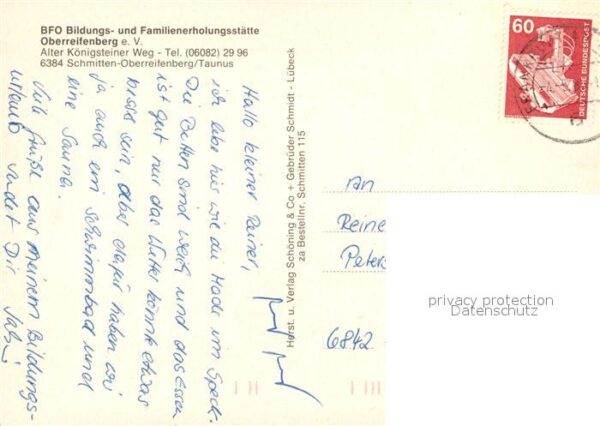 BFO Bildungs- und Familienerholungsstätte
Oberreifenberg e. V.
Alter Königsteiner Weg - Tel. (06082) 29 96
6384 Schmitten-Oberreifenberg/Taunus
Hallo kleiner Reiner,
ich lebe hier wie die Made im Speck.
Die Betten sind weich und das Essen
ist gut nur das Wetter könnte etwas
besser sein, aber dafür haben wir
ja auch ein Schwimmbad und
eine Sauna.
Viele Grüße aus meinem Bildungs-
urlaub sendet Dir
Herst. u. Verlag Schöning & Co + Gebrüder Schmidt - Lübeck
za Bestellnr. Schmitten 115
60
DEUTSCHE BUNDESPOST
An
Reine
Peter
6842
privacy protection
Datenschutz